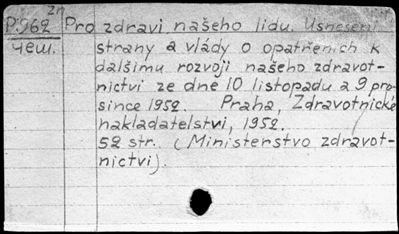 zn
P.962 Pro zdraví našeho lidu. Usnesení
чеш. strany a vlády o opatřeních k
dalšímu rozvoji našeho zdravot-
nictví ze dne 10 listopadu a 9 pro-
since 1952. Praha, Zdravotnické
nakladatelství, 1952.
52 str. (Ministerstvo zdravot-
nictví).